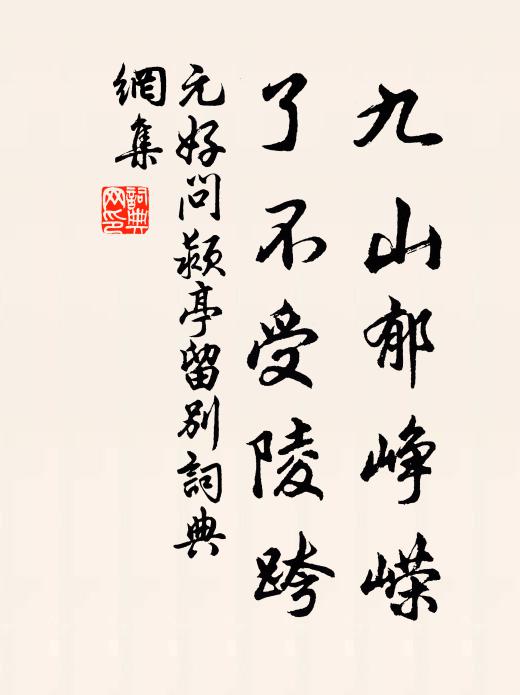 九山郁峥嵘
了不受陵跨
元好问颍亭留别詞典
網集
詞典
网印